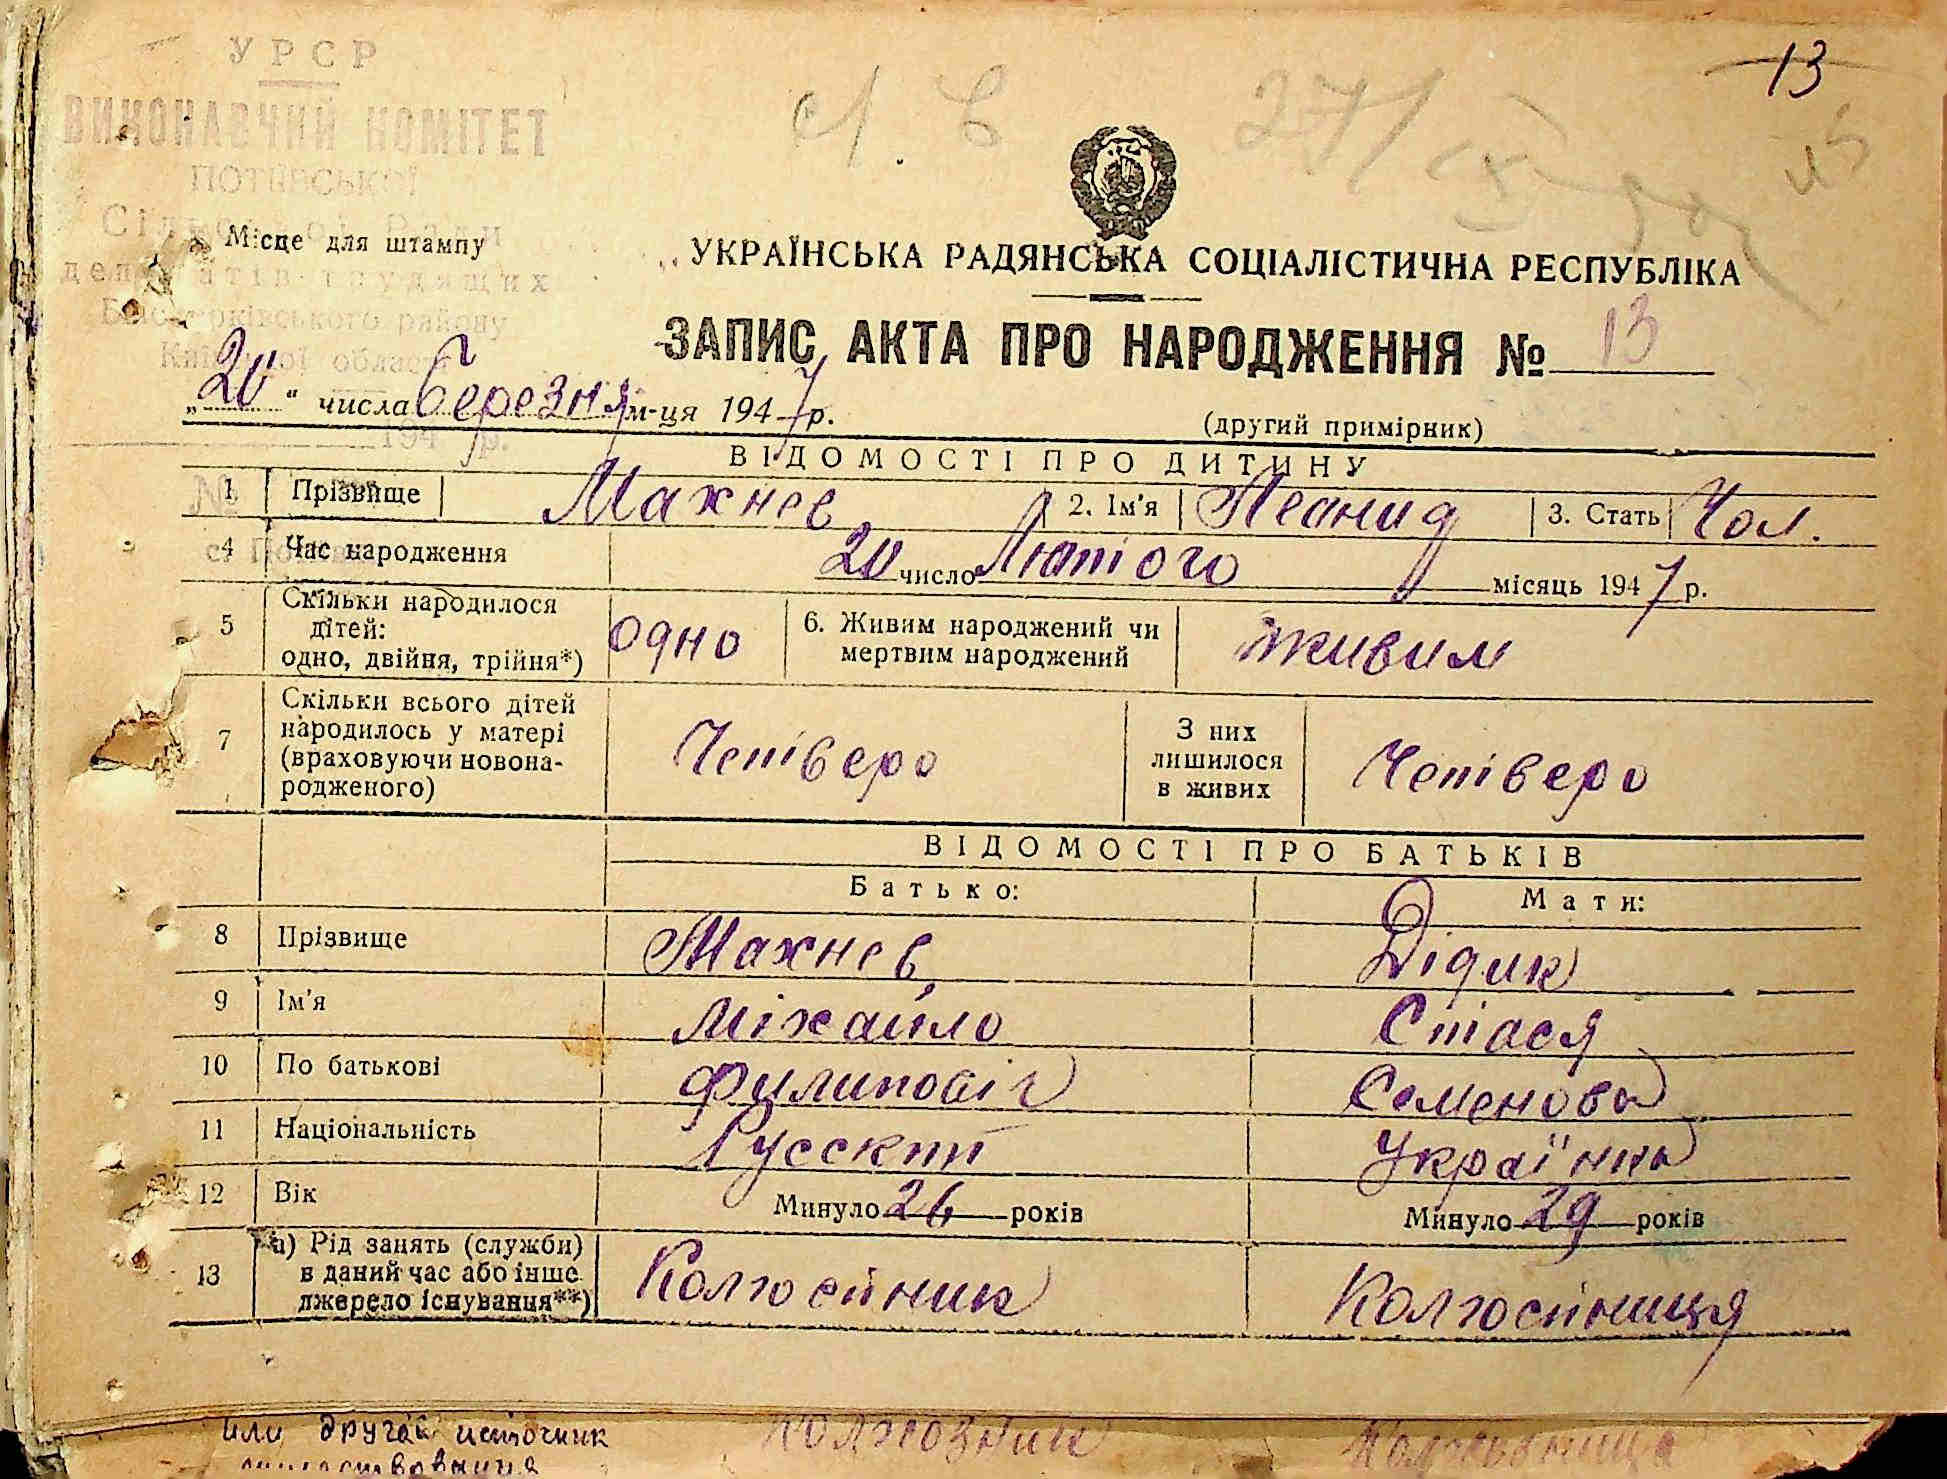 13
УРСР
ВИКОНАВЧИЙ КОМІТЕТ
ПОТІЇВСЬКОЇ
Сільської Ради
депутатів трудящих
Білоцерківського району
Київської області
194 р.
№
Місце для штампу
27/
УКРАЇНСЬКА РАДЯНСЬКА СОЦІАЛІСТИЧНА РЕСПУБЛІКА
ЗАПИС АКТА ПРО НАРОДЖЕННЯ № 13
„20“ числа березня м-ця 1947 р.
(другий примірник)
ВІДОМОСТІ ПРО ДИТИНУ
1 Прізвище Махнев 2. Ім'я Леонид 3. Стать Чол.
4 Час народження 20 число Лютого місяць 1947 р.
5 Скільки народилося дітей: одно, двійня, трійня*) Одно 6. Живим народжений чи мертвим народжений живим
7 Скільки всього дітей народилось у матері (враховуючи новона-родженого) Четверо З них лишилося в живих Четверо
ВІДОМОСТІ ПРО БАТЬКІВ
Батько: Мати:
8 Прізвище Махнев Дідик
9 Ім'я Міхайло Стася
10 По батькові Филиповіч Семенова
11 Національність Русский Українка
12 Вік Минуло 26 років Минуло 29 років
13 а) Рід занять (служби) в даний час або інше джерело існування**) Колгоспник Колгоспниця
или другой источник колхозник колхозница
существования